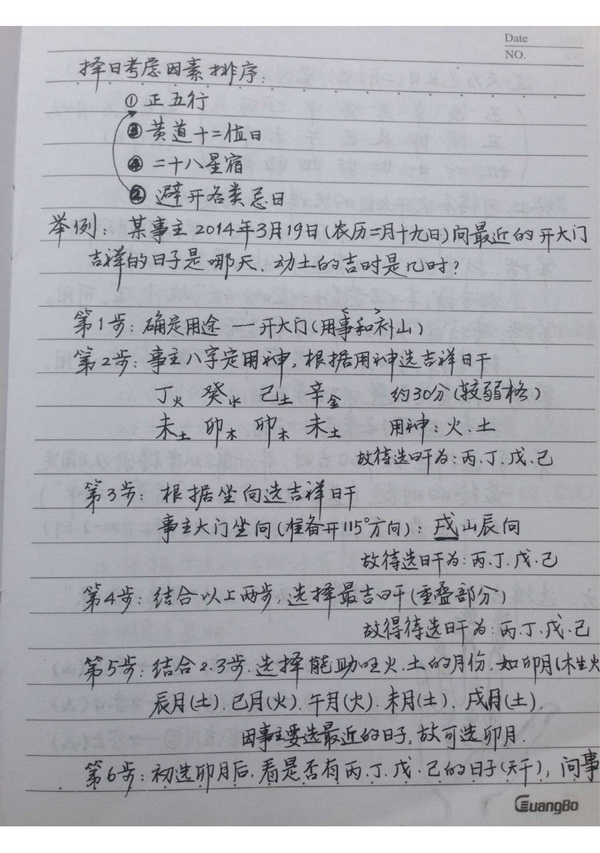 Date
NO.
择日考虑因素排序:
① 正五行
③ 黄道十二值日
④ 二十八星宿
② 避开各类忌日
举例: 某事主2014年3月19日(农历二月十九日)问最近的开大门
吉祥的日子是哪天,动土的吉时是几时?
第1步:确定用途 — 开大门(用事和斜山)
第2步:事主八字定用神,根据用神选吉祥日干
丁火 癸水 己土 辛金 约30分(较弱格)
未土 卯木 卯木 未土 用神:火.土
故待选日干为:丙.丁.戊.己
第3步: 根据坐向选吉祥日干
事主大门坐向(准备开115°方向): 戌山辰向
故待选日干为:丙.丁.戊.己
第4步:结合以上两步,选择最吉日干(重叠部分)
故得待选日干为:丙.丁.戊.己
第5步:结合2.3步.选择能助旺火.土的月份.如卯月(木生火
辰月(土).巳月(火).午月(火).未月(土).戌月(土).
因事主要选最近的日子,故可选卯月.
第6步:初选卯月后.看是否有丙.丁.戊.己的日子(天干),问事
GuangBo